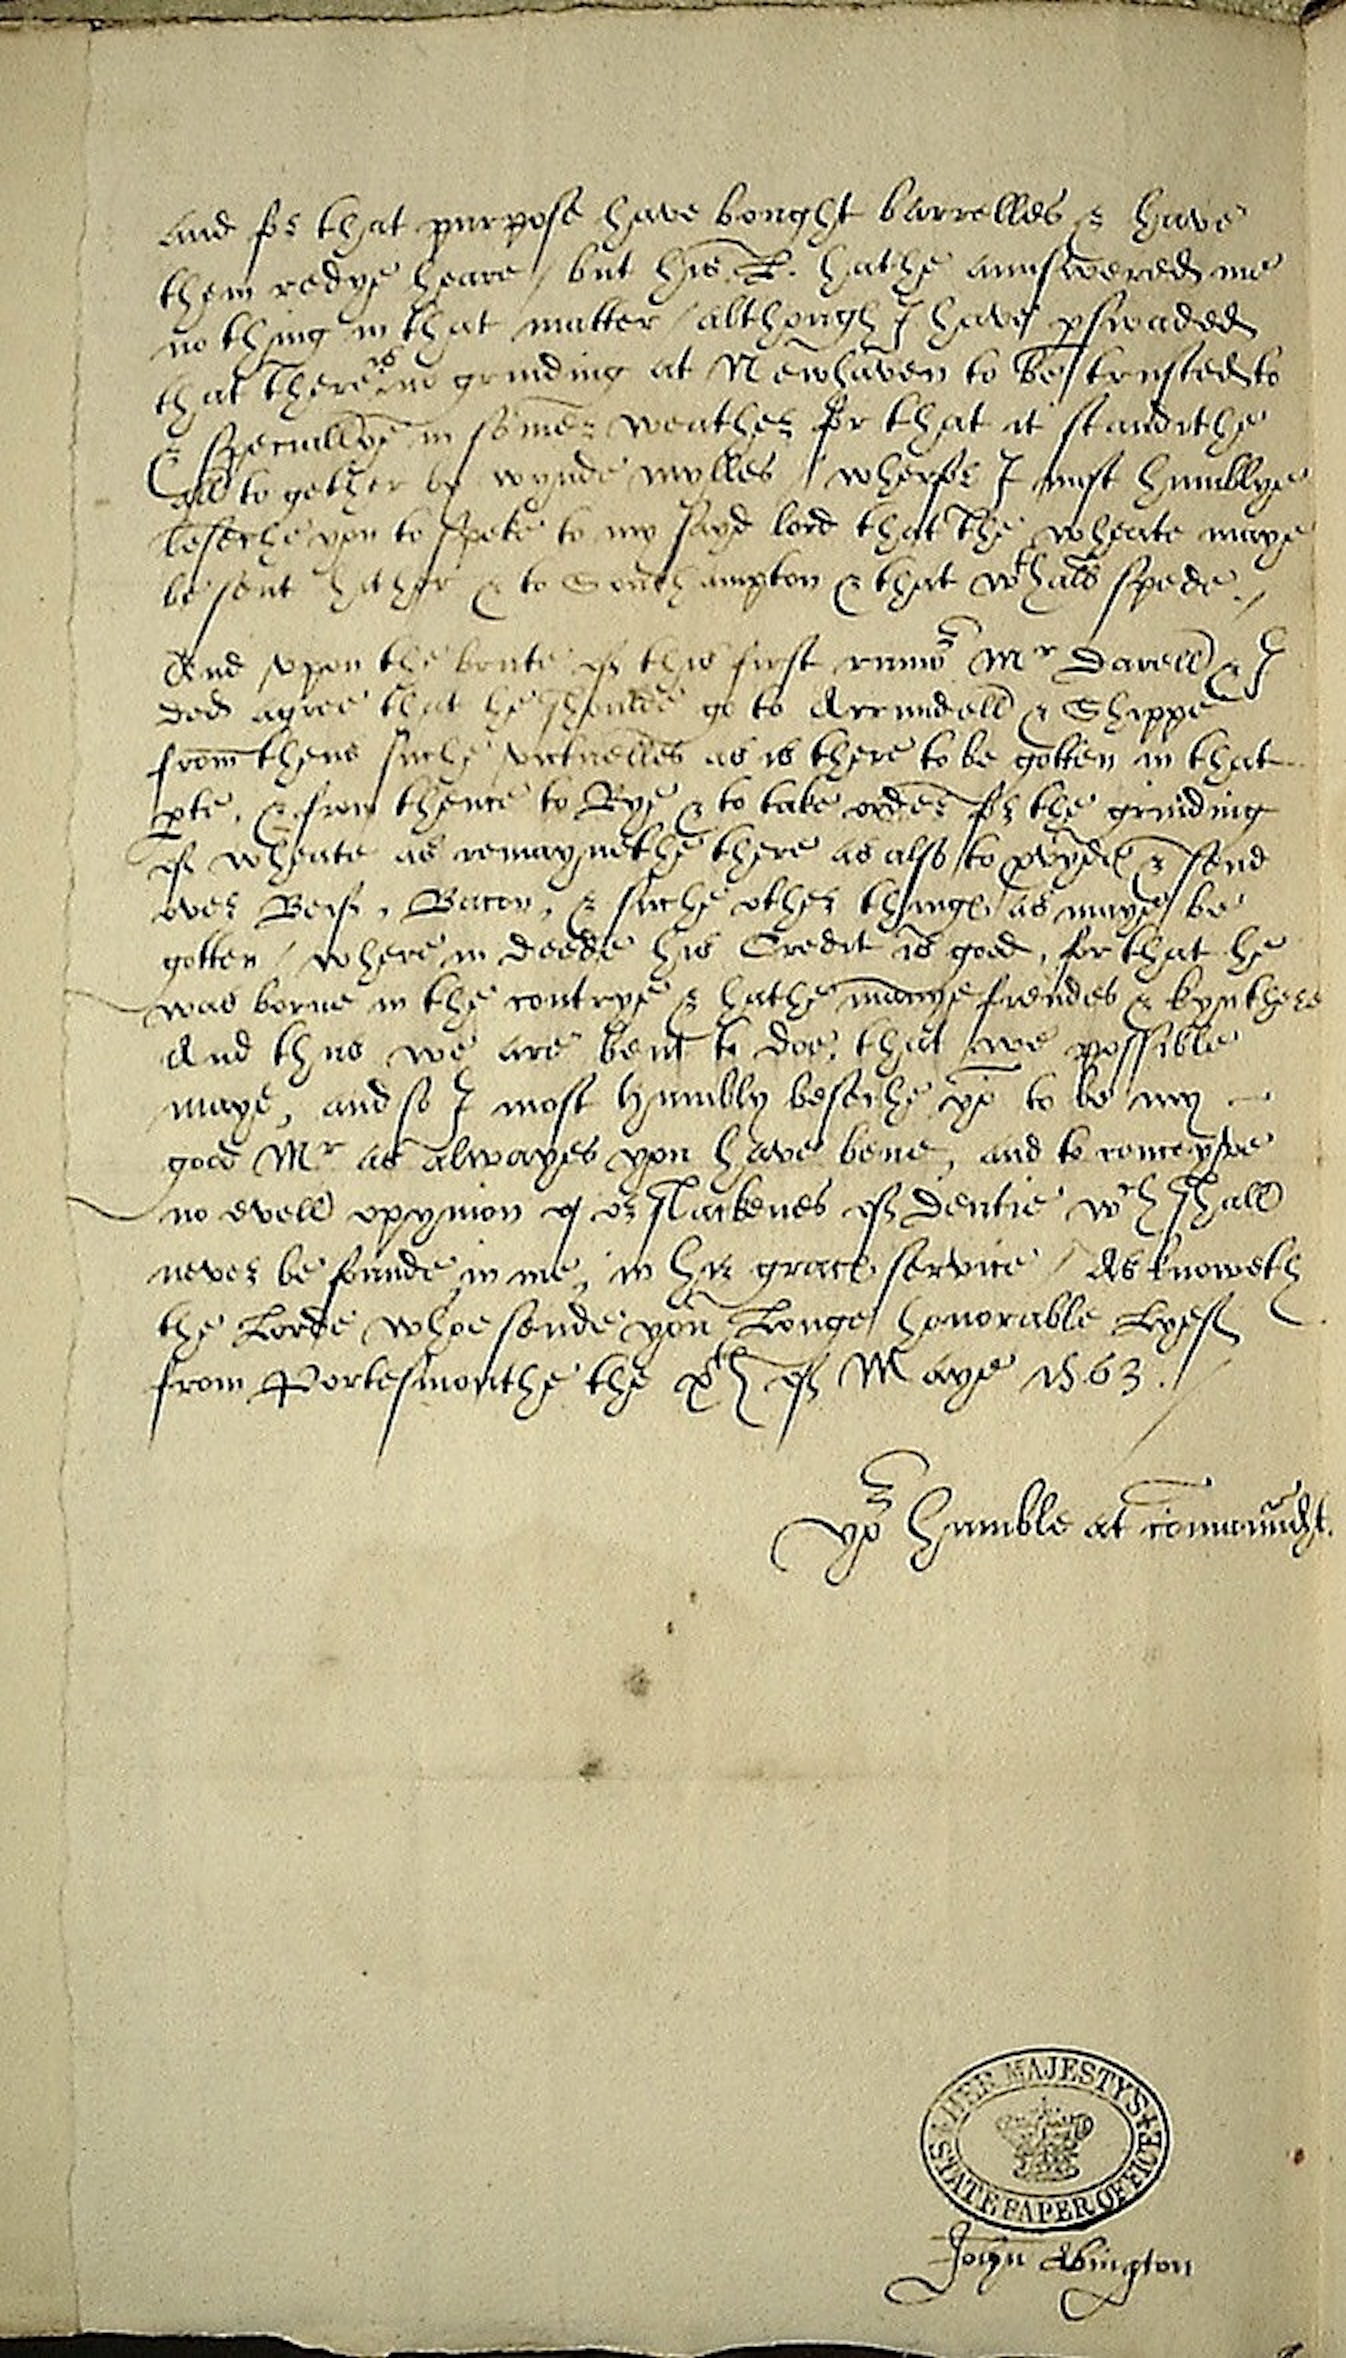 and for that purpose have bought barrelles & have
them redye heare / but his L. hathe aunswered me
nothing in that matter / although I have pswaded
that there is no grinding at Newhaven to be trusted to
& speciallye in somer weather for that it standithe
all to gether by wynde mylles / wherfor I most humblye
beseche you to speke to my sayd lord that the wheate maye
be sent hither & to Southampton & that wth all spede ./
And vpon the brute of this first rumor Mr Darell & I
ded agree that he shoulde go to Arrundell & Shippe
from thens suche victuelles as is there to be gotten in that
pte, & from thence to Rye & to take order for the grinding
of wheate as remaynethe there as also to pvyde & send
over Beif, Bacon, & suche other thinges as maye be
gotten / where in deede his Credit is good, for that he
was borne in the contrye & hathe manye frendes & kyn there
And thus we are bent to doe that we possible
maye, and so I most humbly beseche yo to be my
good Mr as alwayes you have bene, and to conceyve
no evell opynion of or slackenes of deutie wch shall
never be founde in me, in hir graces service / As knoweth
the Lorde whoe sende you Longe honorable Lyef
from Portesmouthe the xth of Maye 1563 ./
yor humble at comaundt.
HER MAJESTY'S
STATE PAPER OFFICE
John Abington